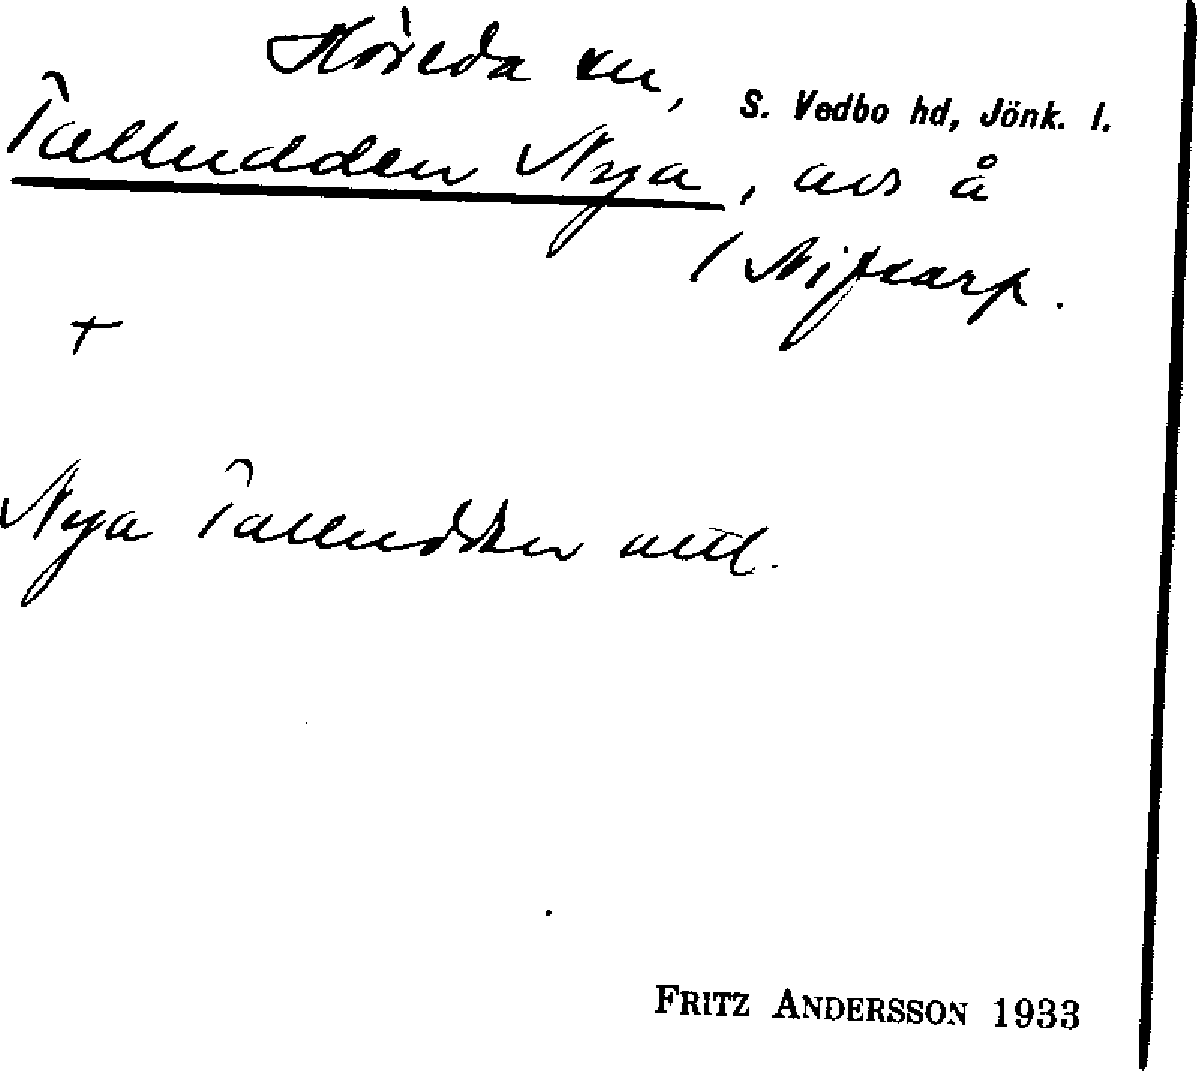 Höreda sn, S. Vedbo hd, Jönk. l.
Talludden Nya, avs å
/ Nifkarp.
+
Nya Talludden uttl.
FRITZ ANDERSSON 1933